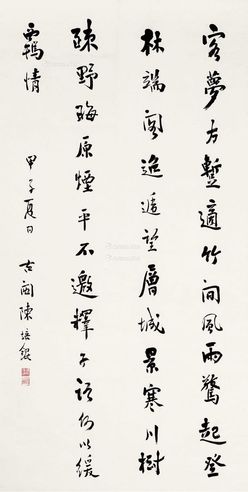 客夢方蹔適竹間風雨驚起登
林端閣逈遥望層城景寒川樹
疎野晦原煙平不邀釋子話何以緩
羈情
甲子夏日 古閩陳培錕